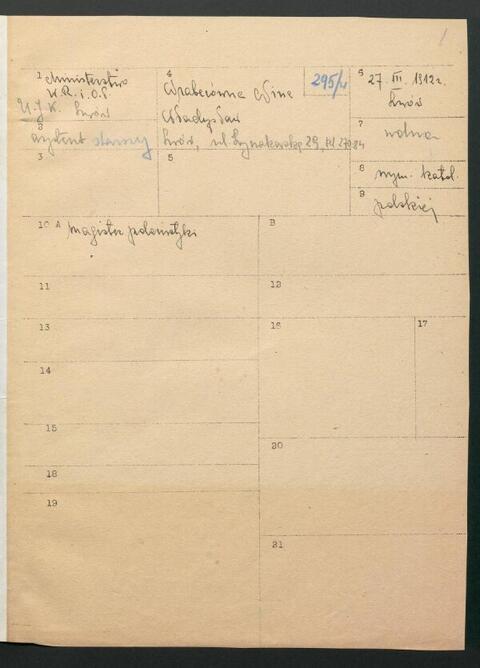 1
1 Ministerstwo
W.R. i O.P.
U.J.K. Lwów
2
asystent starszy
3
4
295/u
Władysław
Lwów, ul. Łyczakowska 29,
5
6 27. III. 1912 r.
Lwów
7
wolna
8
rzym. katol.
9
polskiej
10 A magister polonistyki
B
11
12
13
16
17
14
15
20
18
19
21